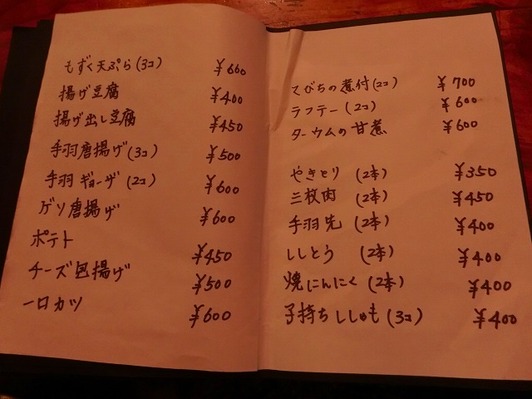 もずく天ぷら(3コ) ¥600
揚げ豆腐 ¥400
揚げ出し豆腐 ¥450
手羽唐揚げ(3コ) ¥500
手羽ギョーザ(2コ) ¥600
ゲソ唐揚げ ¥600
ポテト ¥450
チーズ包揚げ ¥500
一口カツ ¥600
てびちの煮付(2コ) ¥700
ラフテー(2コ) ¥600
ターウムの甘煮 ¥600
やきとり (2本) ¥350
三枚肉 (2本) ¥450
手羽先 (2本) ¥400
ししとう (2本) ¥400
焼にんにく (2本) ¥400
子持ちししゃも(3コ) ¥400